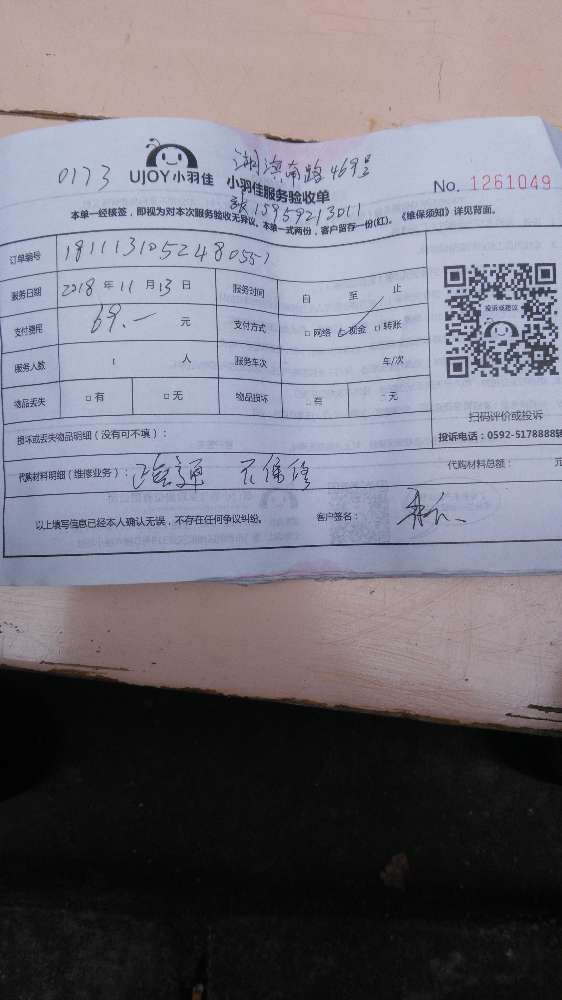 0173
UJOY小羽佳
湖滨南路469号
小羽佳服务验收单
No. 1261049
15959213011
本单一经核签，即视为对本次服务验收无异议。本单一式两份，客户留存一份(红)。《维保须知》详见背面。
订单编号 1811131052480551
服务日期 2018 年 11 月 13 日 服务时间 自 至 止
支付费用 69.— 元 支付方式 □ 网络 □ 现金 □ 转账
服务人数 1 人 服务车次 年/次
物品丢失 □ 有 □ 无 物品损坏 □ 有 无
投诉或建议
扫码评价或投诉
投诉电话：0592-5178888转
损坏或丢失物品明细（没有可不填）：
代购材料明细（维修业务）： 疏通 不保修 代购材料总额： 元
以上填写信息已经本人确认无误，不存在任何争议纠纷。 客户签名：